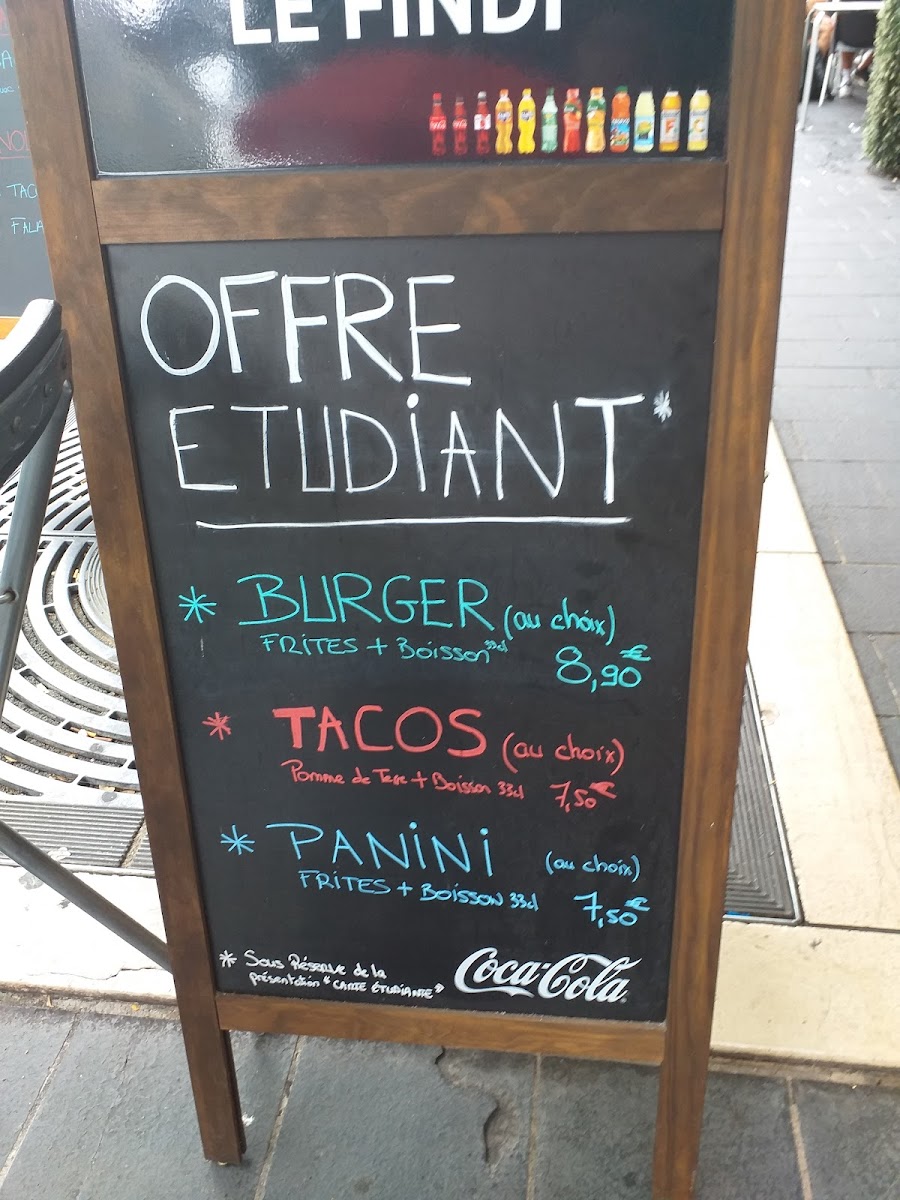 LE FINDI
OFFRE
ETUDIANT*
* BURGER (au choix)
FRITES + Boisson 33cl 8,90€
* TACOS (au choix)
Pomme de Terre + Boisson 33cl 7,50€
* PANINI (au choix)
FRITES + BOISSON 33cl 7,50€
* Sous Réserve de la
présentation "CARTE ÉTUDIANTE"
Coca-Cola
TACO
FALA